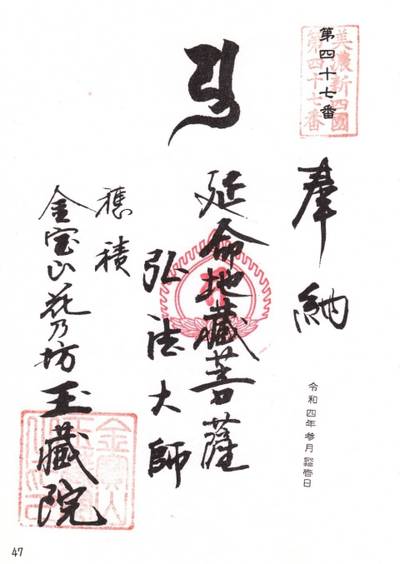 美濃新四國
第四十七番
第四十七番
奉納
令和四年参月
延命地蔵菩薩
弘法大師
穂積
金宝山花乃坊玉蔵院
47